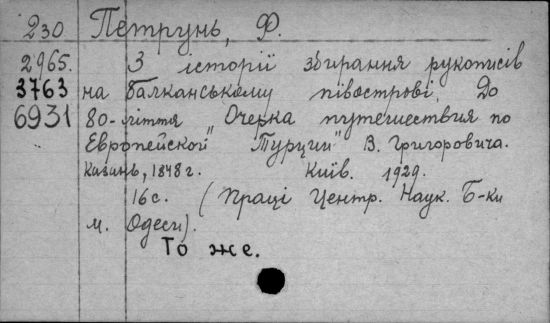 230 Петрунь, Ф.
2965. З історії збирання рукописів
3763 на Балканському півострові. До
6931 80-ліття "Очерка путешествия по
Европейской Турции" В. Григоровича.
Казань, 1848 г. Київ. 1929.
16 с. (Праці Центр. Наук. Б-ки
м. Одеси).
То же.